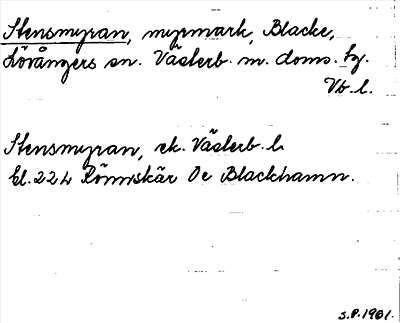 Stensmyran, myrmark, Blacke,
Lövångers sn. Västerb. m. doms. tg.
Vb. l.
Stensmyran, ek. Västerb. l.
bl. 22 L Rönnskär Oe Blackhamn.
S.P. 1961.